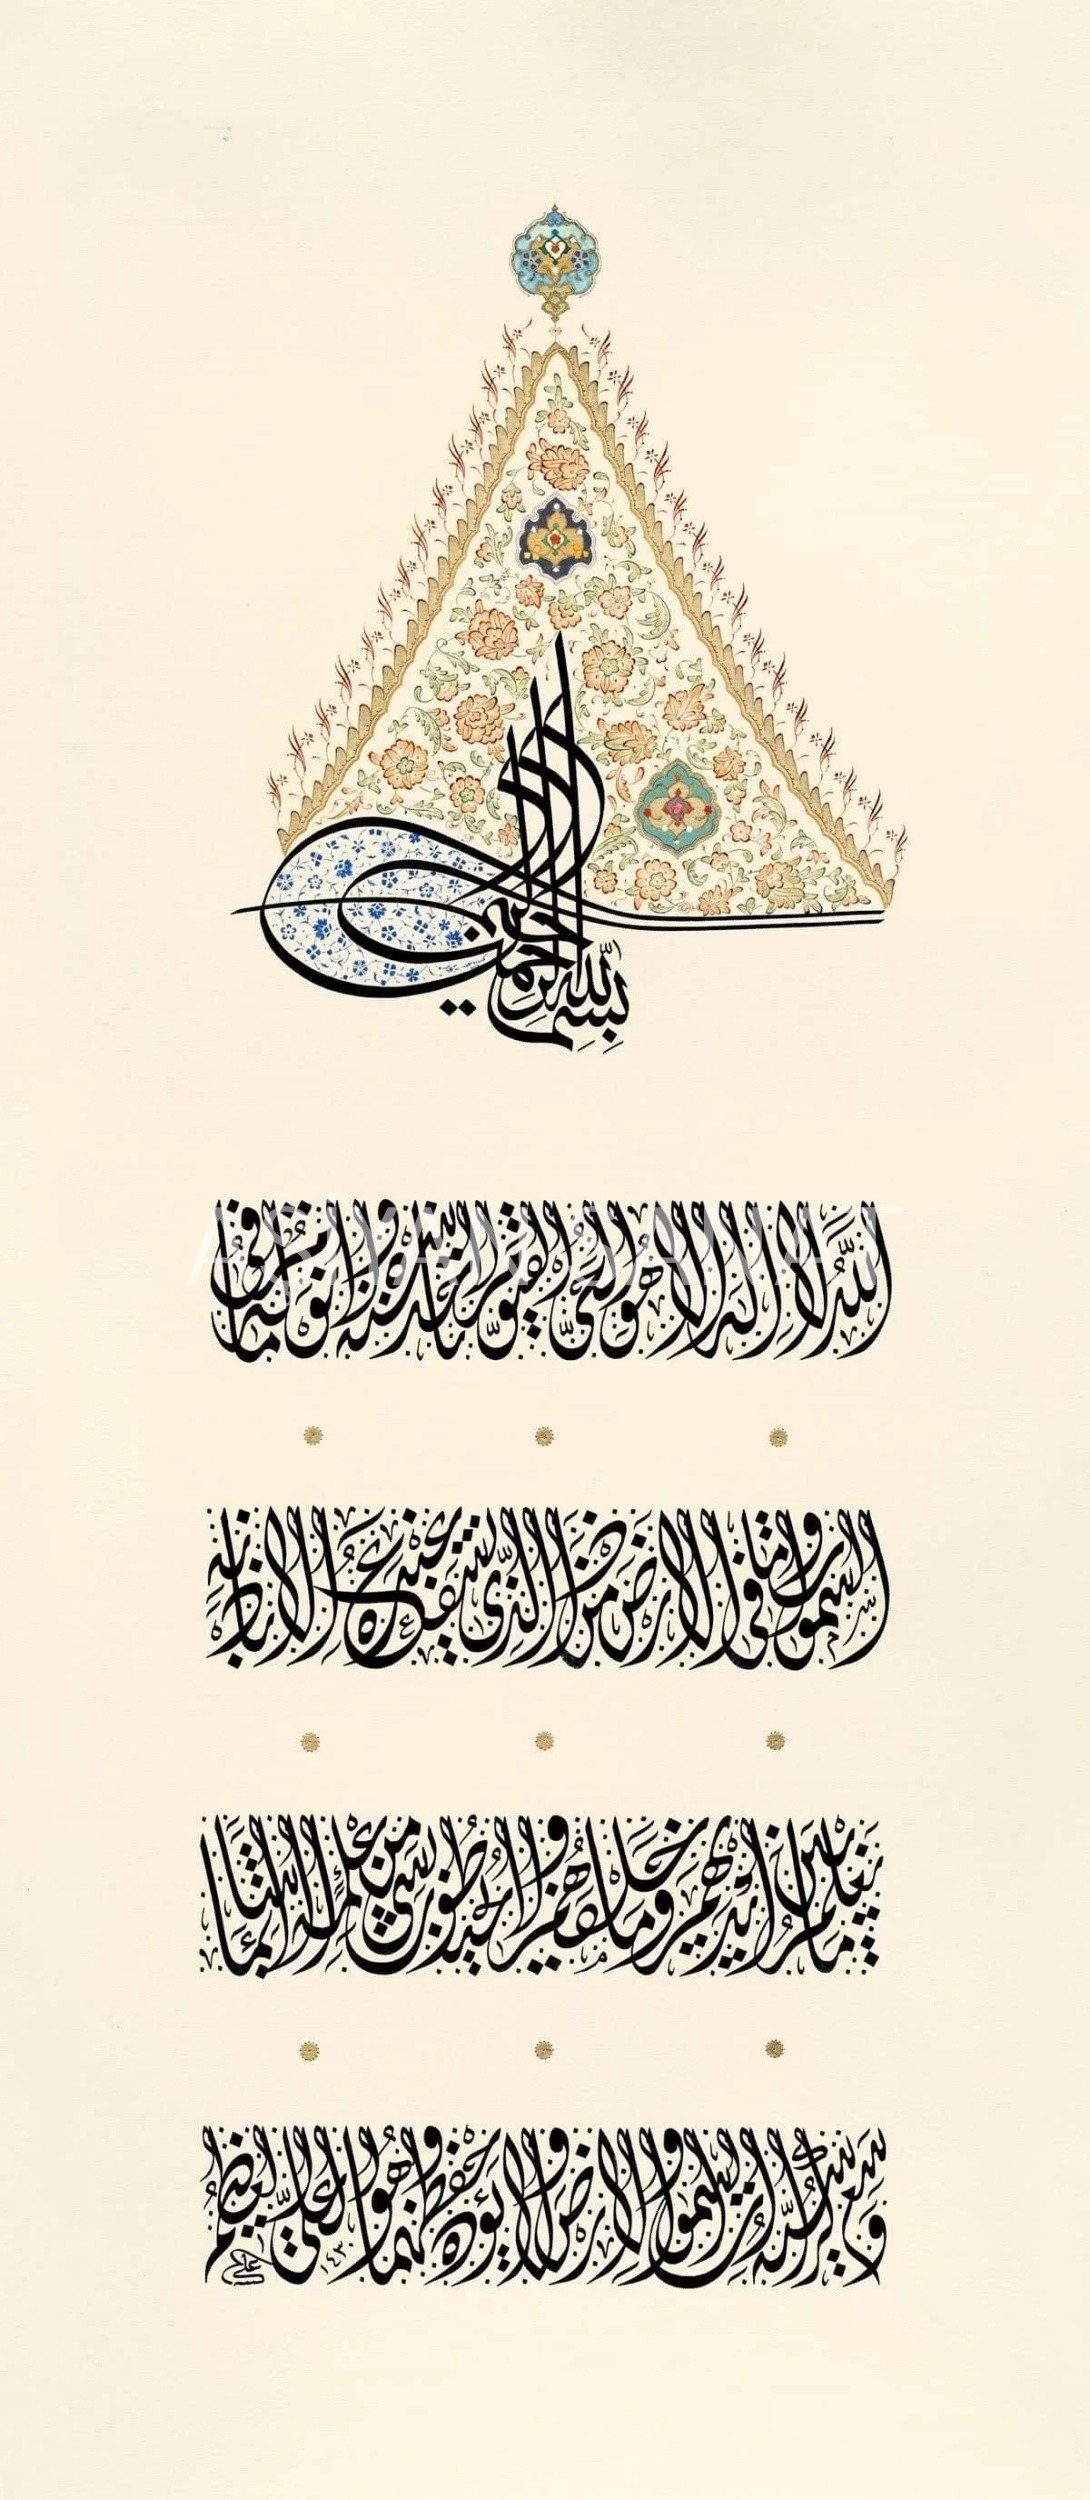 بسم الله الرحمن الرحيم
الله لا اله الا هو الحي القيوم لا تأخذه سنة ولا نوم له ما في
السموات وما في الارض من ذا الذي يشفع عنده الا باذنه
يعلم ما بين ايديهم وما خلفهم ولا يحيطون بشيء من علمه الا بما شاء
وسع كرسيه السموات والارض ولا يؤده حفظهما وهو العلي العظيم